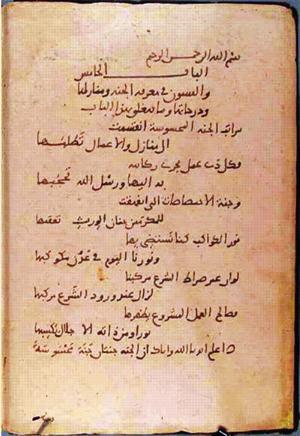 بسم الله الرحمن الرحيم
الباب الخامس
والستون في معرفة الجنة ومنازلها
ودرجاتها وما يتعلق بهذا الباب
مراتب الجنة المحسوسة انقسمت
الى منازل والاعمال تطلبها
فكل ذي عمل تجري ركائبه
به اليها ورسل الله تحجبها
وجنة الاختصاصات التي
للمكرمين جنان الورث تعقبها
نور الكواكب كنا نستضي بها
ونورنا اليوم في عدن يكوكبها
لو ان عين صراط الشرع مركبنا
لزال عند ورود الشرع مركبها
فصالح العمل المشروع يظهرها
نورا ومن ذاته الاجلال يكسبها
اعلم ايدنا الله واياك ان الجنة جنتان جنة محسوسة